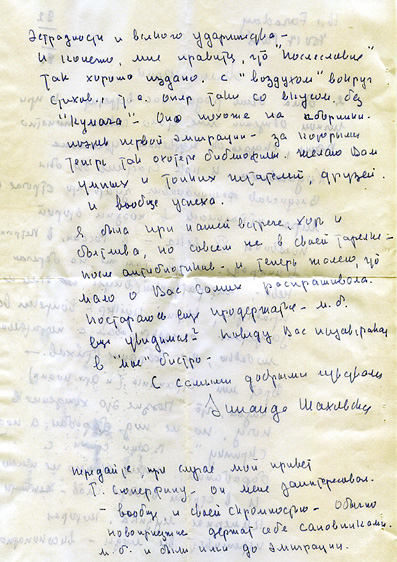 эстрадности и всякого ударничества –
И конечно, мне нравится, что "Послесловие"
так хорошо издано. с "воздухом" вокруг
стихов., т.е. опять таки со вкусом, без
"кумача" – Оно похоже на сборники.
поэтов первой эмиграции – за которыми
теперь так охотятся библиофилы. желаю Вам
умных и тонких читателей, друзей.
и вообще успеха.
Я была при нашей встрече, хоть и
болтлива, но совсем не в своей тарелке –
после антибиотиков – и теперь жалею, что
мало о Вас самих расспрашивала.
Постараюсь еще продержаться – м.б.
еще увидимся? Повезу Вас позавтракать
в "мое" бистро –
С самыми добрыми чувствами
Зинаида Шаховская
передайте, при случае мой привет
Г. Суперфину – он меня заинтересовал.
– вообще и своей скромностью – обычно
новоприезжие держат себя сановниками.
м.б. и были ими до эмиграции.